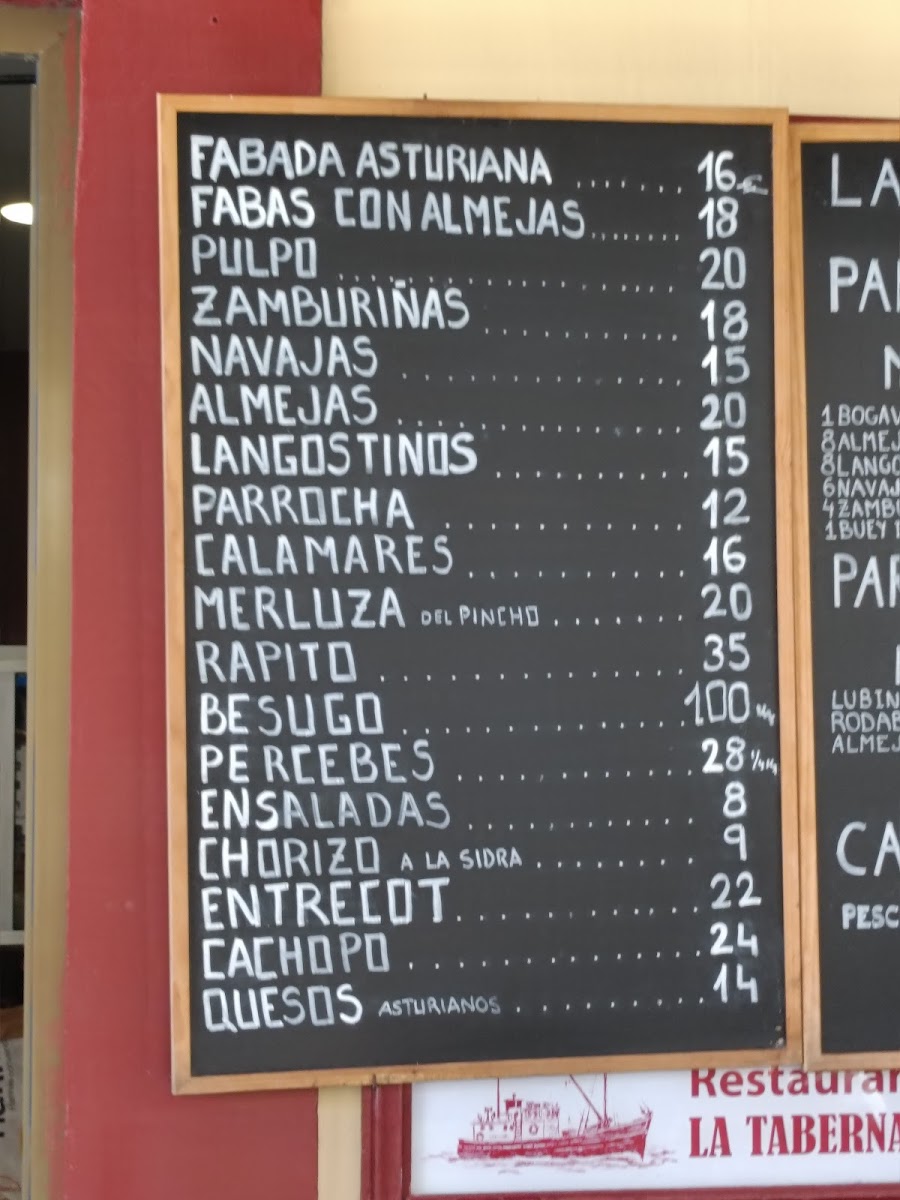 FABADA ASTURIANA ....... 16
FABAS CON ALMEJAS ........ 18
PULPO .................. 20
ZAMBURIÑAS .......... 18
NAVAJAS ............. 15
ALMEJAS .............. 20
LANGOSTINOS ......... 15
PARROCHA ........... 12
CALAMARES .......... 16
MERLUZA DEL PINCHO ....... 20
RAPITO .............. 35
BESUGO .............. 100
PERCEBES ........... 28 1/4 Kg
ENSALADAS .......... 8
CHORIZO A LA SIDRA ........ 9
ENTRECOT ............ 22
CACHOPO ............. 24
QUESOS ASTURIANOS ......... 14
LA
1 BOGAV
8 ALMEJ
8 LANGO
6 NAVAJ
4 ZAMBU
1 BUEY
PAR
LUBIN
RODAB
ALMEJ
CA
PESC
Restauran
LA TABERNA